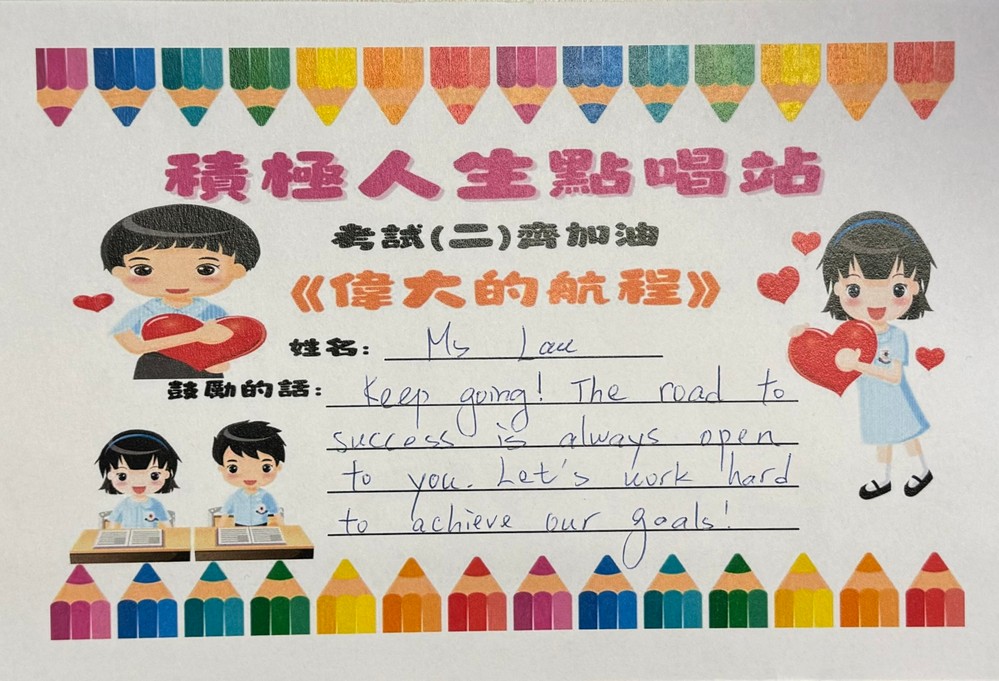 積極人生點唱站
考試(二)齊加油
《偉大的航程》
姓名: Ms Lau
鼓勵的話: Keep going! The road to
success is always open
to you. Let's work hard
to achieve our goals!